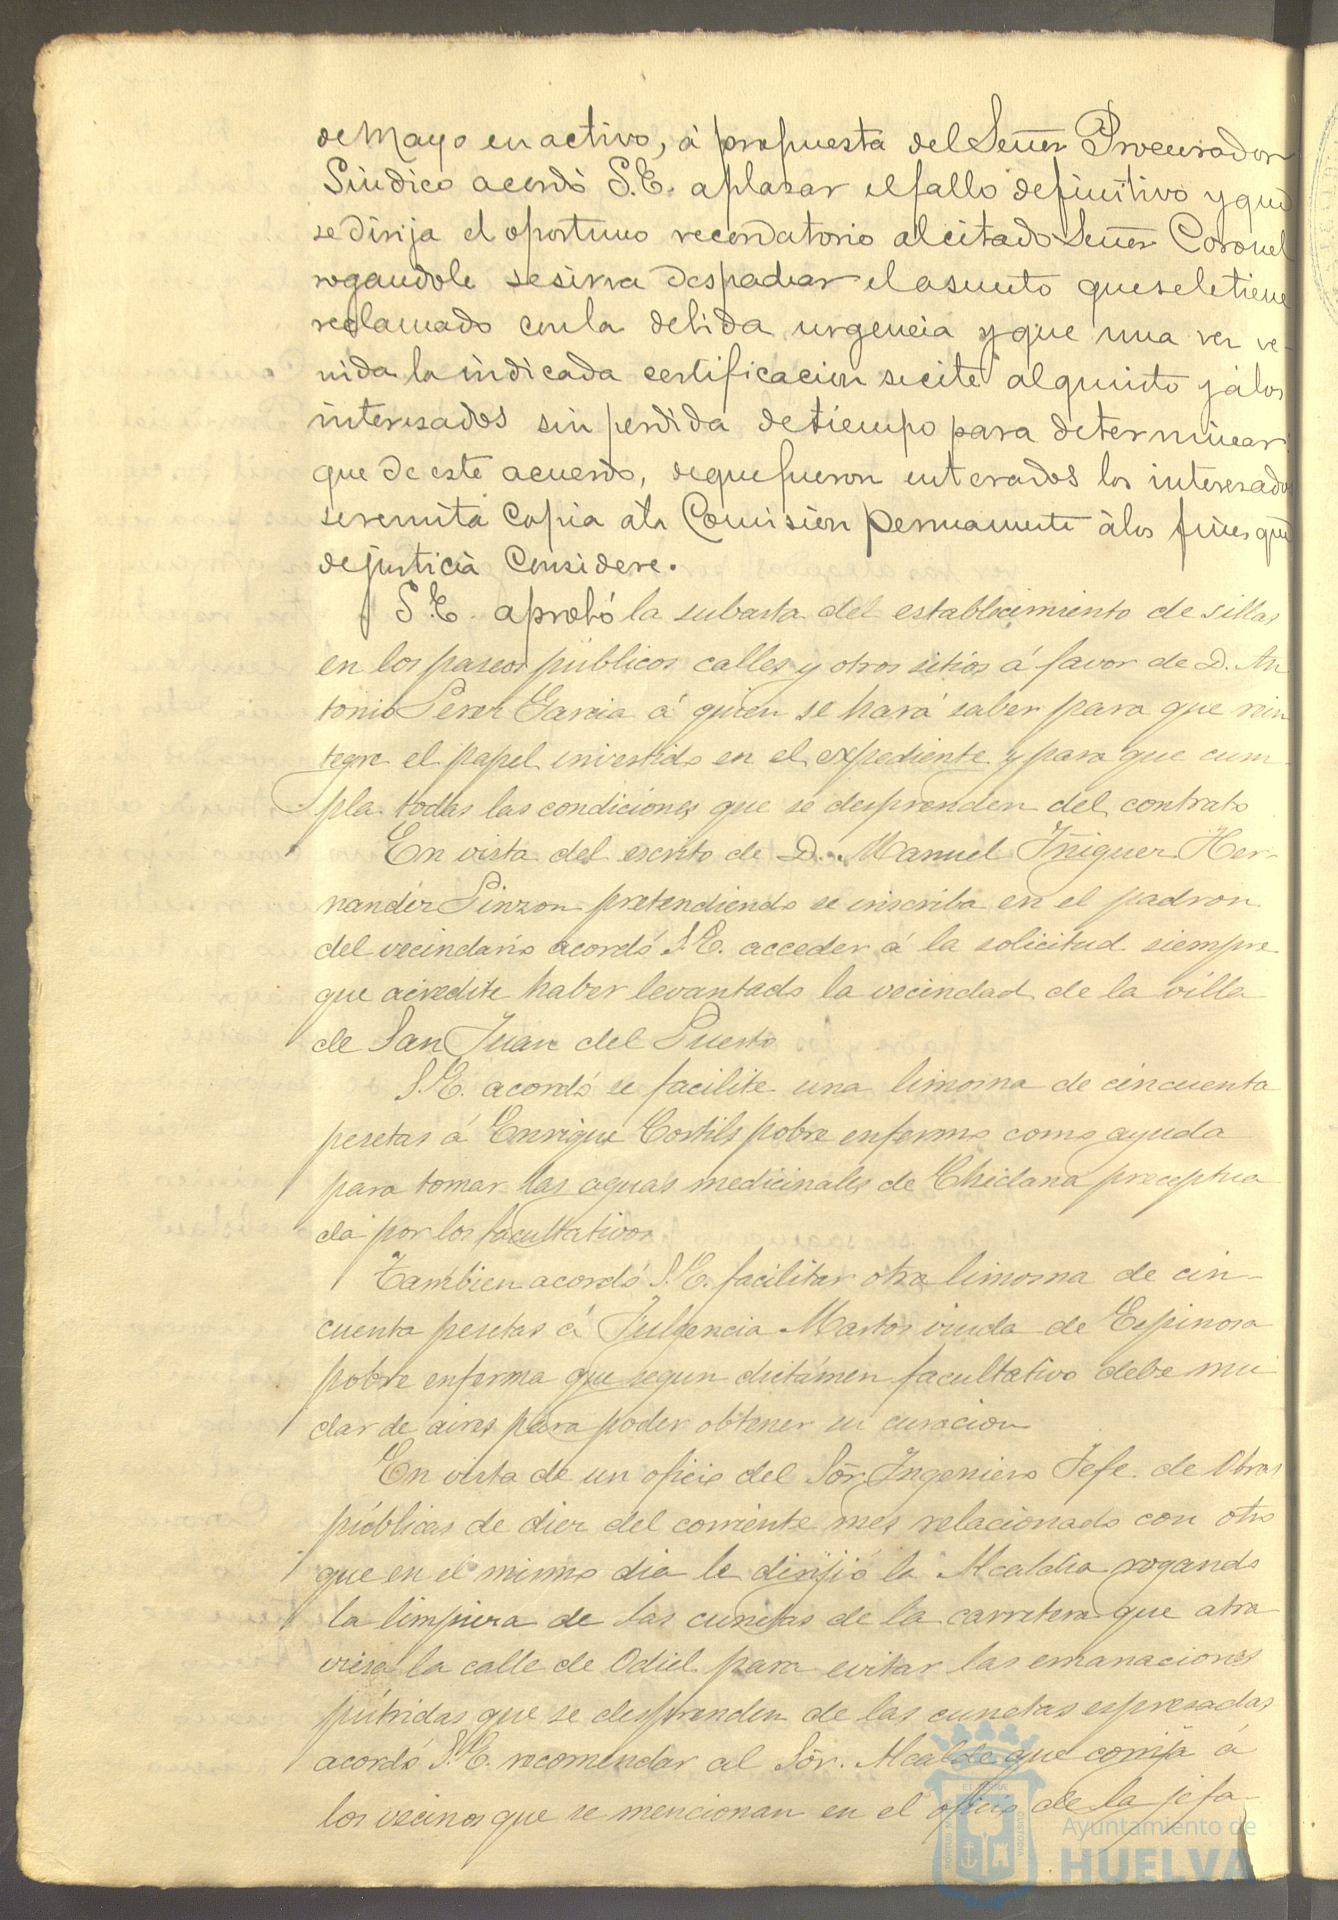 de Mayo en activo, á propuesta del Señor Procurador
Síndico acordó S.E. aplazar el fallo definitivo y que
se dirija el oportuno recordatorio al citado Señor Coronel
rogandole se sirva despachar el asunto que se le tiene
reclamado con la debida urgencia y que una vez ve-
nida la indicada certificacion se cite al quinto y á los
interesados sin perdida de tiempo para determinar:
que de este acuerdo, de que fueron enterados los interesados
se remita copia a la Comision permanente á los fines que
de justicia considere.
S.E. aprobó la subasta del establecimiento de sillas
en los paseos públicos calles y otros sitios á favor de D. An
tonio Perez Garcia á quien se hará saber para que rein
tegre el papel invertido en el expediente y para que cum-
pla todas las condiciones que se desprenden del contrato
En vista del escrito de D. Manuel Iñiguez Her-
nandez Pinzon pretendiendo se inscriba en el padron
del vecindario acordó S.E. acceder á la solicitud siempre
que acredite haber levantado la vecindad de la villa
de San Juan del Puerto
S.E. acordó se facilite una limosna de cincuenta
pesetas á Enrique Cortils pobre enfermo como ayuda
para tomar las aguas medicinales de Chiclana preceptua
da por los facultativos
Tambien acordó S.E. facilitar otra limosna de cin-
cuenta pesetas á Fulgencia Martos viuda de Espinosa
pobre enferma que segun dictámen facultativo debe mu
dar de aires para poder obtener su curacion
En vista de un oficio del Sōr. Ingeniero Jefe de Obras
públicas de diez del corriente mes relacionado con otro
que en el mismo dia le dirijió la Alcaldia rogando
la limpieza de las cunetas de la carretera que atra
viesa la calle de Odiel para evitar las emanaciones
pútridas que se desprenden de las cunetas espresadas
acordó S.E. recomendar al Sōr. Alcalde que corrija á
los vecinos que se mencionan en el oficio de la jefa-
Ayuntamiento de
HUELVA